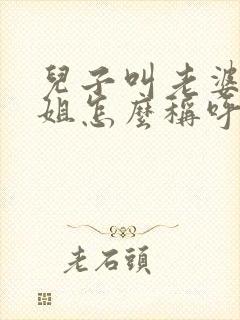 兒子叫老婆
姐怎麼稱呼
老石頭